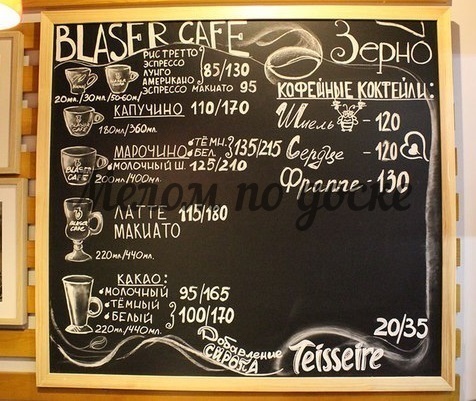 BLASER CAFE
Зерно
РИСТРЕТТО
ЭСПРЕССО
ЛУНГО
АМЕРИКАНО
85/130
ЭСПРЕССО МАКИАТО 95
20мл./30мл/50-60мл
КАПУЧИНО 110/170
180мл/360мл.
МАРОЧИНО •ТЁМН. •БЕЛ. 135/215
•МОЛОЧНЫЙ Ш. 125/210
200мл/400мл.
ЛАТТЕ 115/180
МАКИАТО
220мл/440мл.
КАКАО:
•МОЛОЧНЫЙ 95/165
•ТЁМНЫЙ
•БЕЛЫЙ
100/170
220мл./440мл.
КОФЕЙНЫЕ КОКТЕЙЛИ:
Шмель - 120
Сердце - 120
Фраппе - 130
Добавление
СИРОПА
Teisseire
20/35
BLASER CAFE
BLASER CAFE
BLASER CAFE
мелом по доске